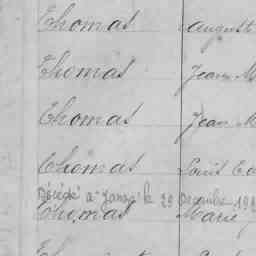 Thomas August
Thomas Jean M
Thomas Jean M
Thomas Louis Ed
Décédé à le 29 Décembre 19
Thomas Marie